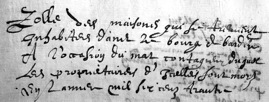 Rolle des maisons qui se trouvent
inhabitees dans le bourg de
A l'occasion du mal contagieux duquel
Les proprietaires d'icelles sont morts
En l'annee mil six cens trante